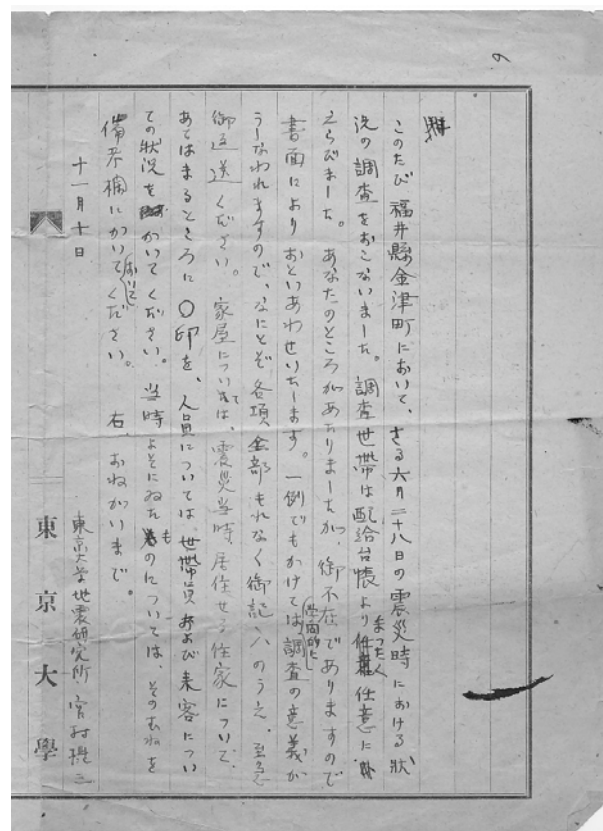 このたび福井縣金津町において、さる六月二十八日の震災時における状
況の調査をおこないました。調査世帯は配給台帳よりまったく任意に
えらびました。あなたのところがあたりましたが、御不在でありますので
書面によりおといあわせいたします。一例でもかけては学問的に調査の意義が
うしなわれますので、なにとぞ各項全部もれなく御記入のうえ、至急
御返送ください。家屋については、震災当時居住せる住家について、
あてはまるところに〇印を、人員については、世帯員および来客につい
ての状況をかいてください。当時よそにゐたものについては、そのむねを
備考欄にかいておいてください。右、おねがいまで。
十一月十日
東京大学地震研究所 宮村攝三
東京大學